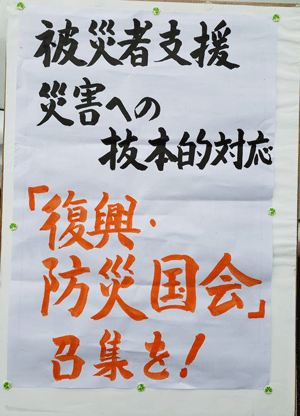 被災者支援
災害への
抜本的対応
「復興・
防災国会」
召集を!